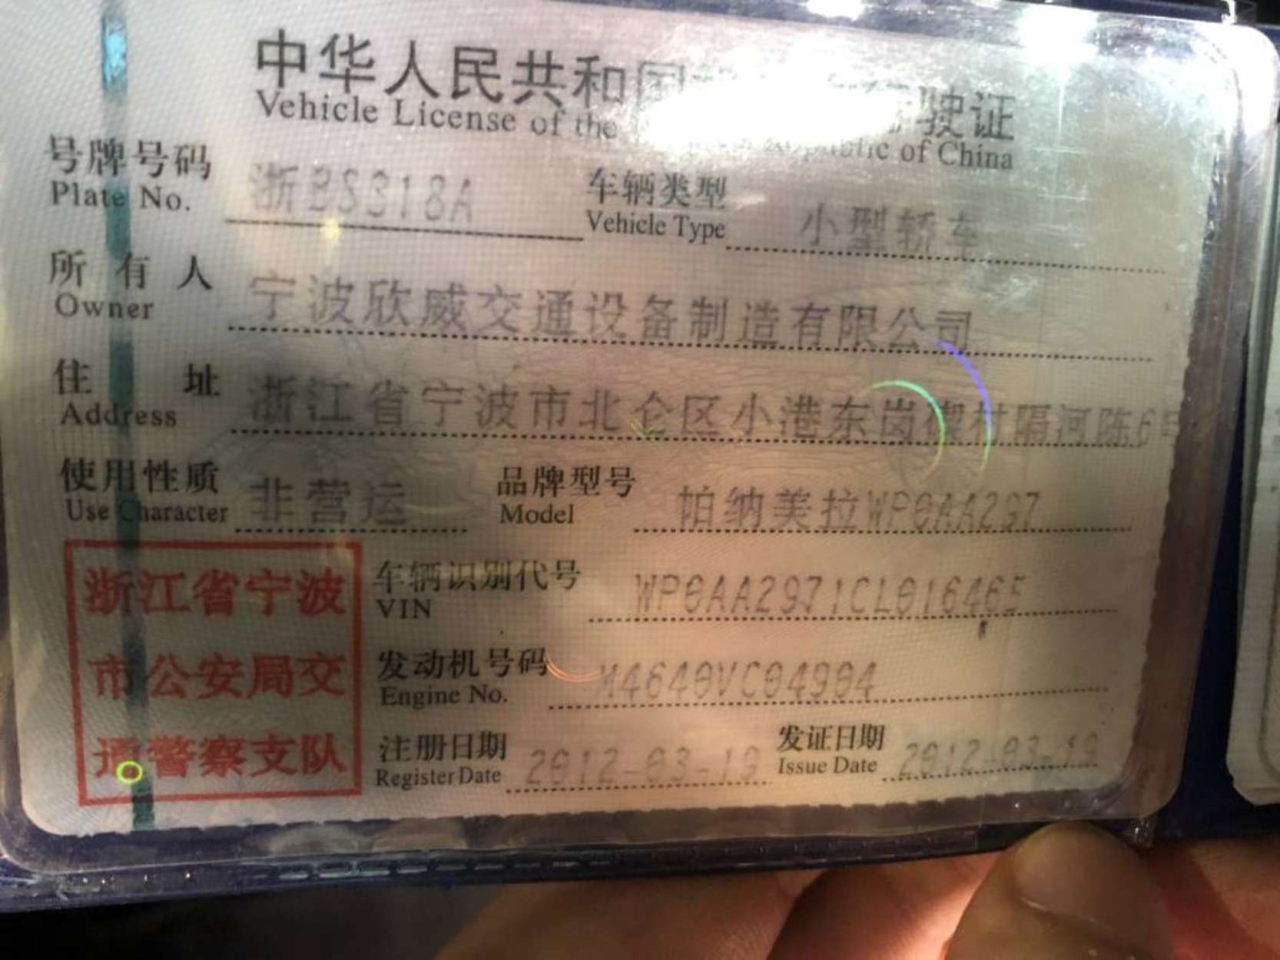 中华人民共和国 驶证
Vehicle License of the Republic of China
号牌号码 浙BS318A 车辆类型 小型轿车
Plate No. Vehicle Type
所有人 宁波欣威交通设备制造有限公司
Owner
住址 浙江省宁波市北仑区小港东岗碶村隔河陈6号
Address
使用性质 非营运 品牌型号 帕纳美拉WP0AA297
Use Character Model
浙江省宁波
市公安局交
通警察支队
车辆识别代号 WP0AA2971CL016465
VIN
发动机号码 M4640VC04904
Engine No.
注册日期 2012-03-19 发证日期 2012-03-19
Register Date Issue Date